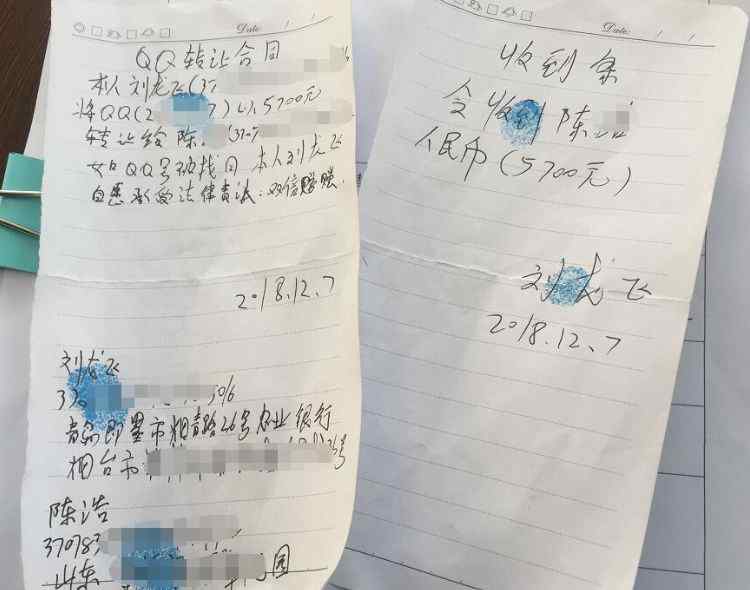 Date / /
QQ转让合同
本人刘龙飞(37 6
将QQ(2 7)以5700元
转让给陈 370
如QQ号被找回 本人刘龙飞
自愿承受法律责法.双倍赔赔
2018.12.7
刘龙飞
370 506
青岛即墨市烟青路26号农业银行
烟台市 号
陈浩
370783
山东 园
Date / /
收到条
今收到陈浩
人民币(5700元)
刘龙飞
2018.12.7